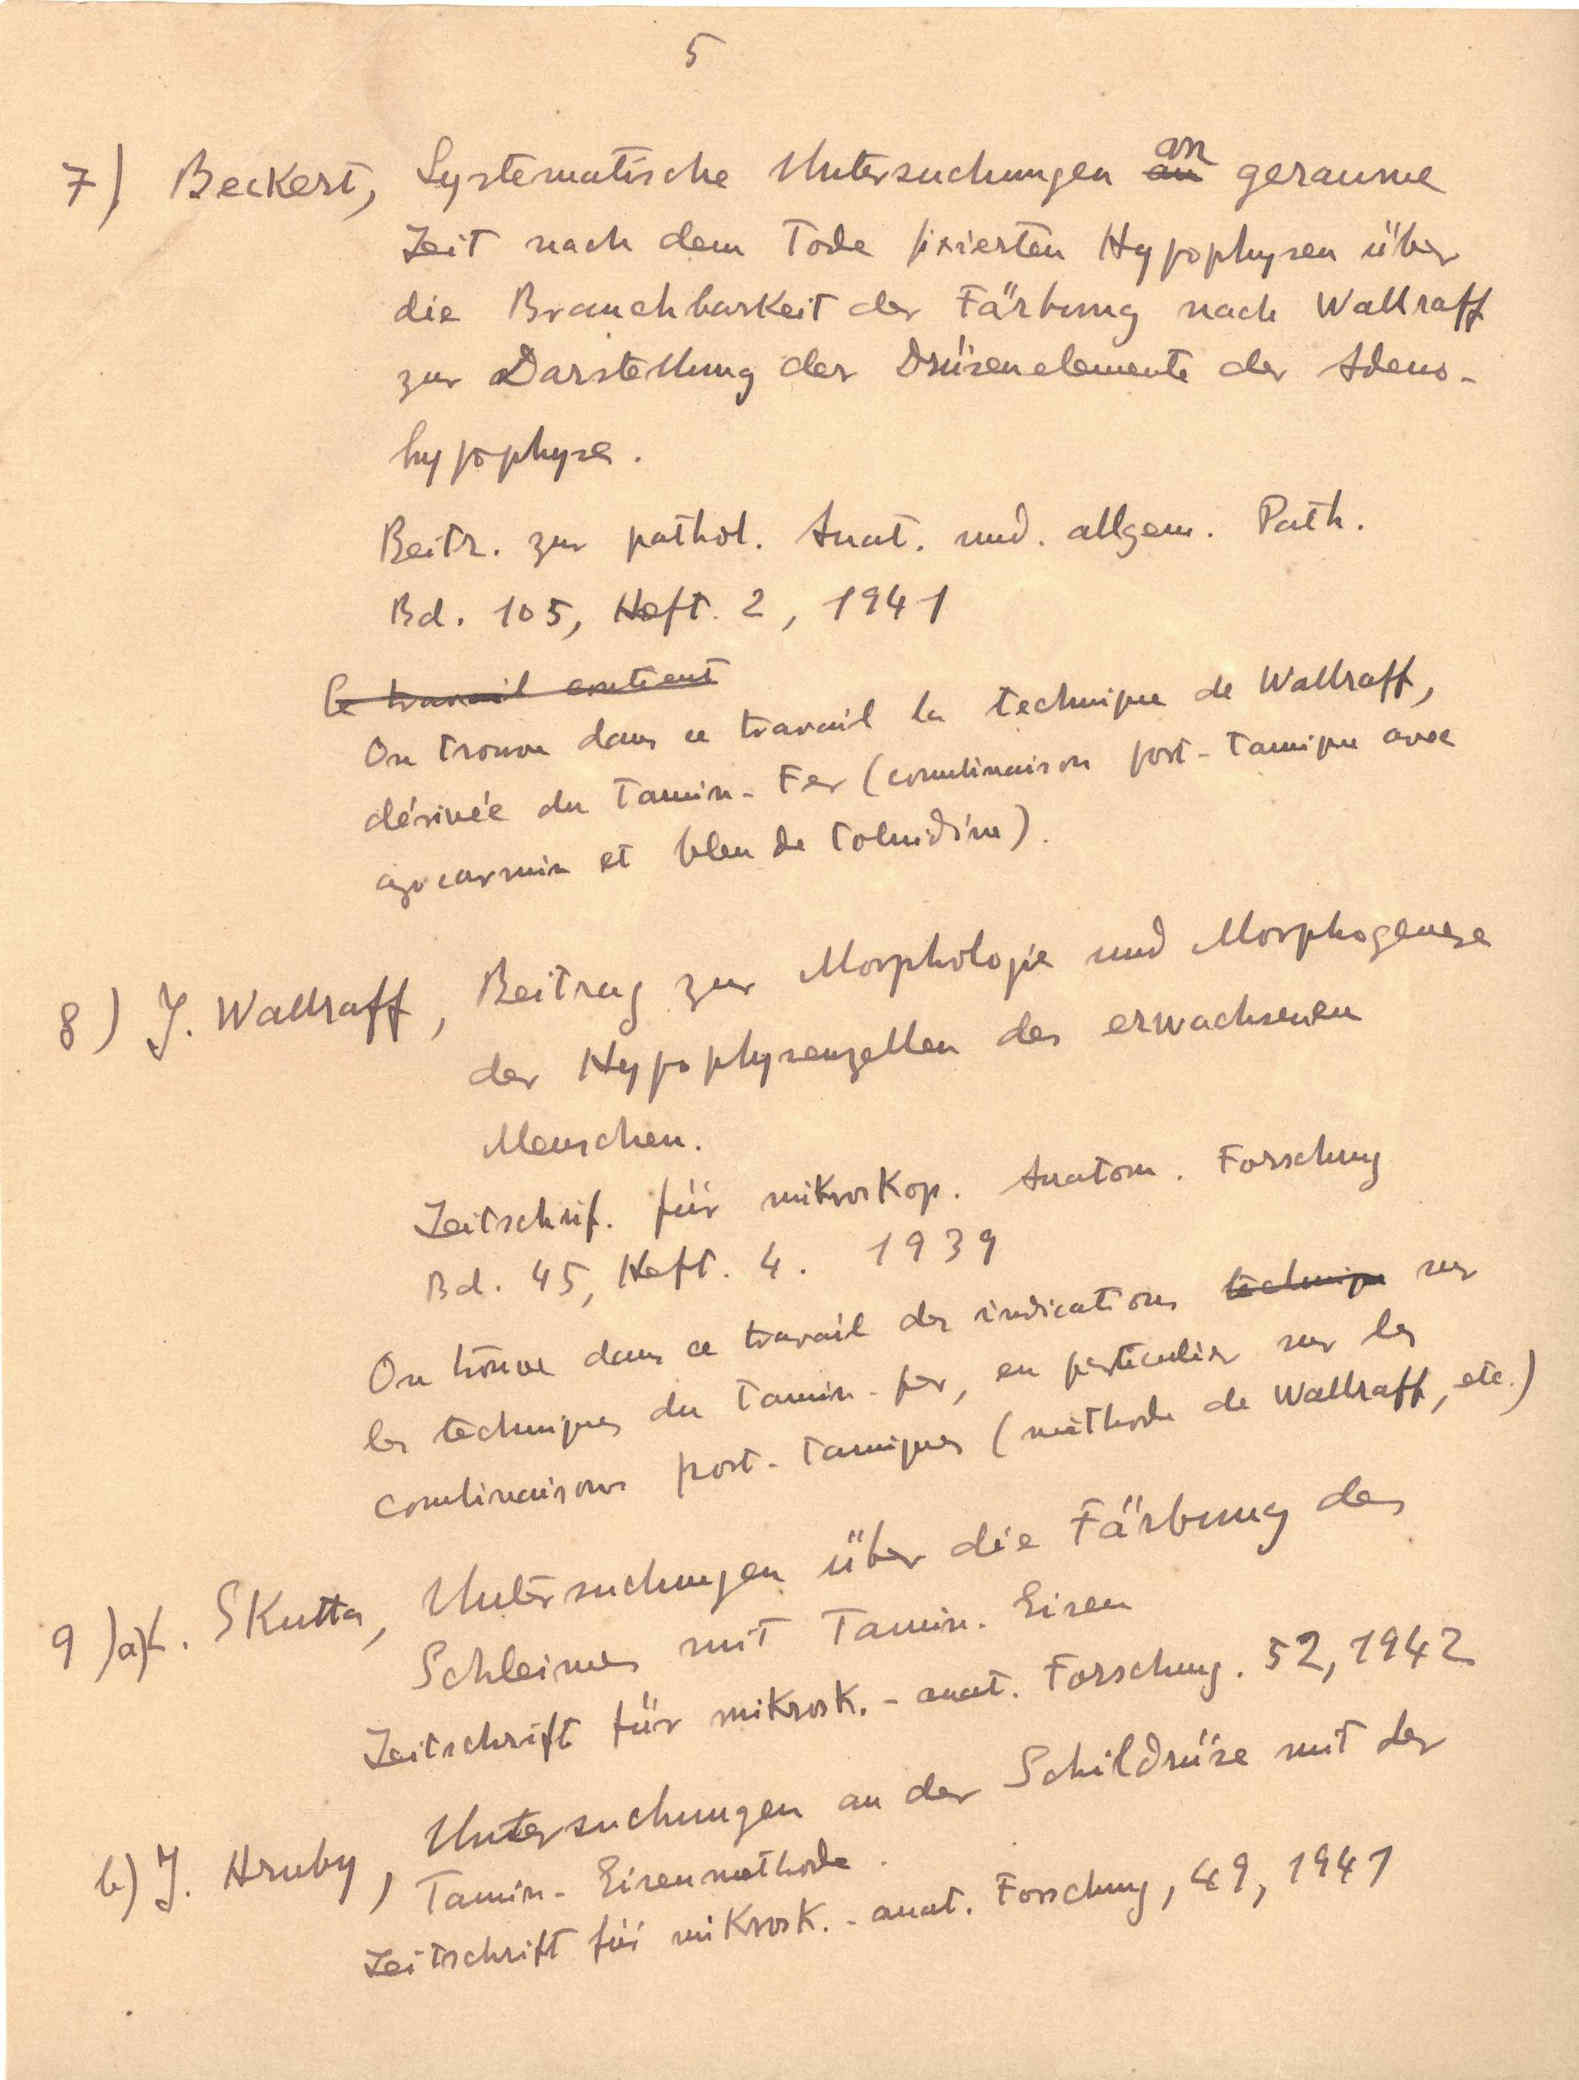 5
7) Beckert, Systematische Untersuchungen an geraume
Zeit nach dem Tode fixierten Hypophysen über
die Brauchbarkeit der Färbung nach Wallraff
zur Darstellung der Drüsenelemente der Adeno-
hypophyse.
Beitr. zur pathol. Anat. und. allgem. Path.
Bd. 105, Heft. 2, 1941
Ce travail contient
On trouve dans ce travail la technique de Wallraff,
dérivée du Tannin-Fer (combinaison post-tannique avec
azocarmin et bleu de toluidine).
8) J. Wallraff, Beitrag zur Morphologie und Morphogenese
der Hypophysenzellen des erwachsenen
Menschen.
Zeitschrif. für mikroskop. Anatom. Forschung
Bd. 45, Heft. 4. 1939
On trouve dans ce travail des indications technique sur
les techniques du Tannin-fer, en particulier sur les
combinaisons post-tanniques (méthode de Wallraff, etc.)
9) a) . Skutta, Untersuchungen über die Färbung des
Schleimes mit Tannin. Eisen
Zeitschrift für mikrosk.-anat. Forschung. 52, 1942
b) J. Hruby, Untersuchungen an der Schildrüse mit der
Tannin-Eisenmethode.
Zeitschrift für mikrosk.-anat. Forschung, 49, 1941